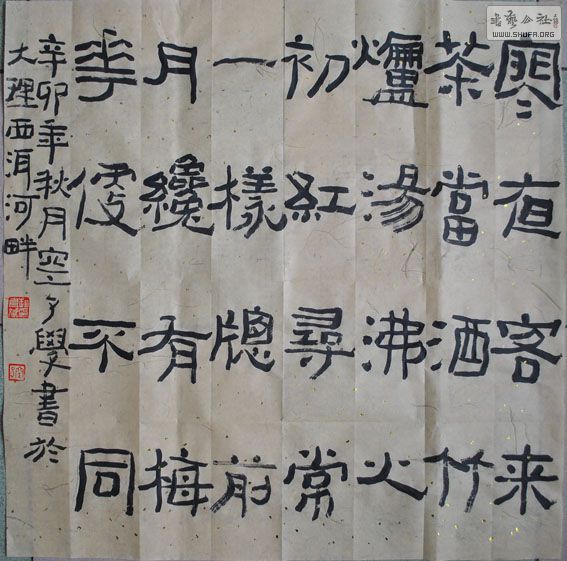 寒夜客来
茶當酒竹
爐湯沸火
初紅尋常
一樣牕前
月纔有梅
花便不同
辛卯年秋月空學書於
大理西洱河畔
书艺公社
WWW.SHUFA.ORG